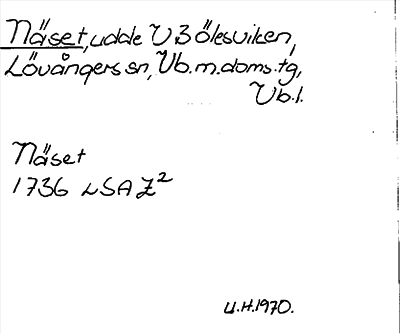 Näset, udde V Bölesviken,
Lövångers sn, Vb. m. doms. tg,
Vb. l.
Näset
1736 LSA Z²
U.H. 1970.